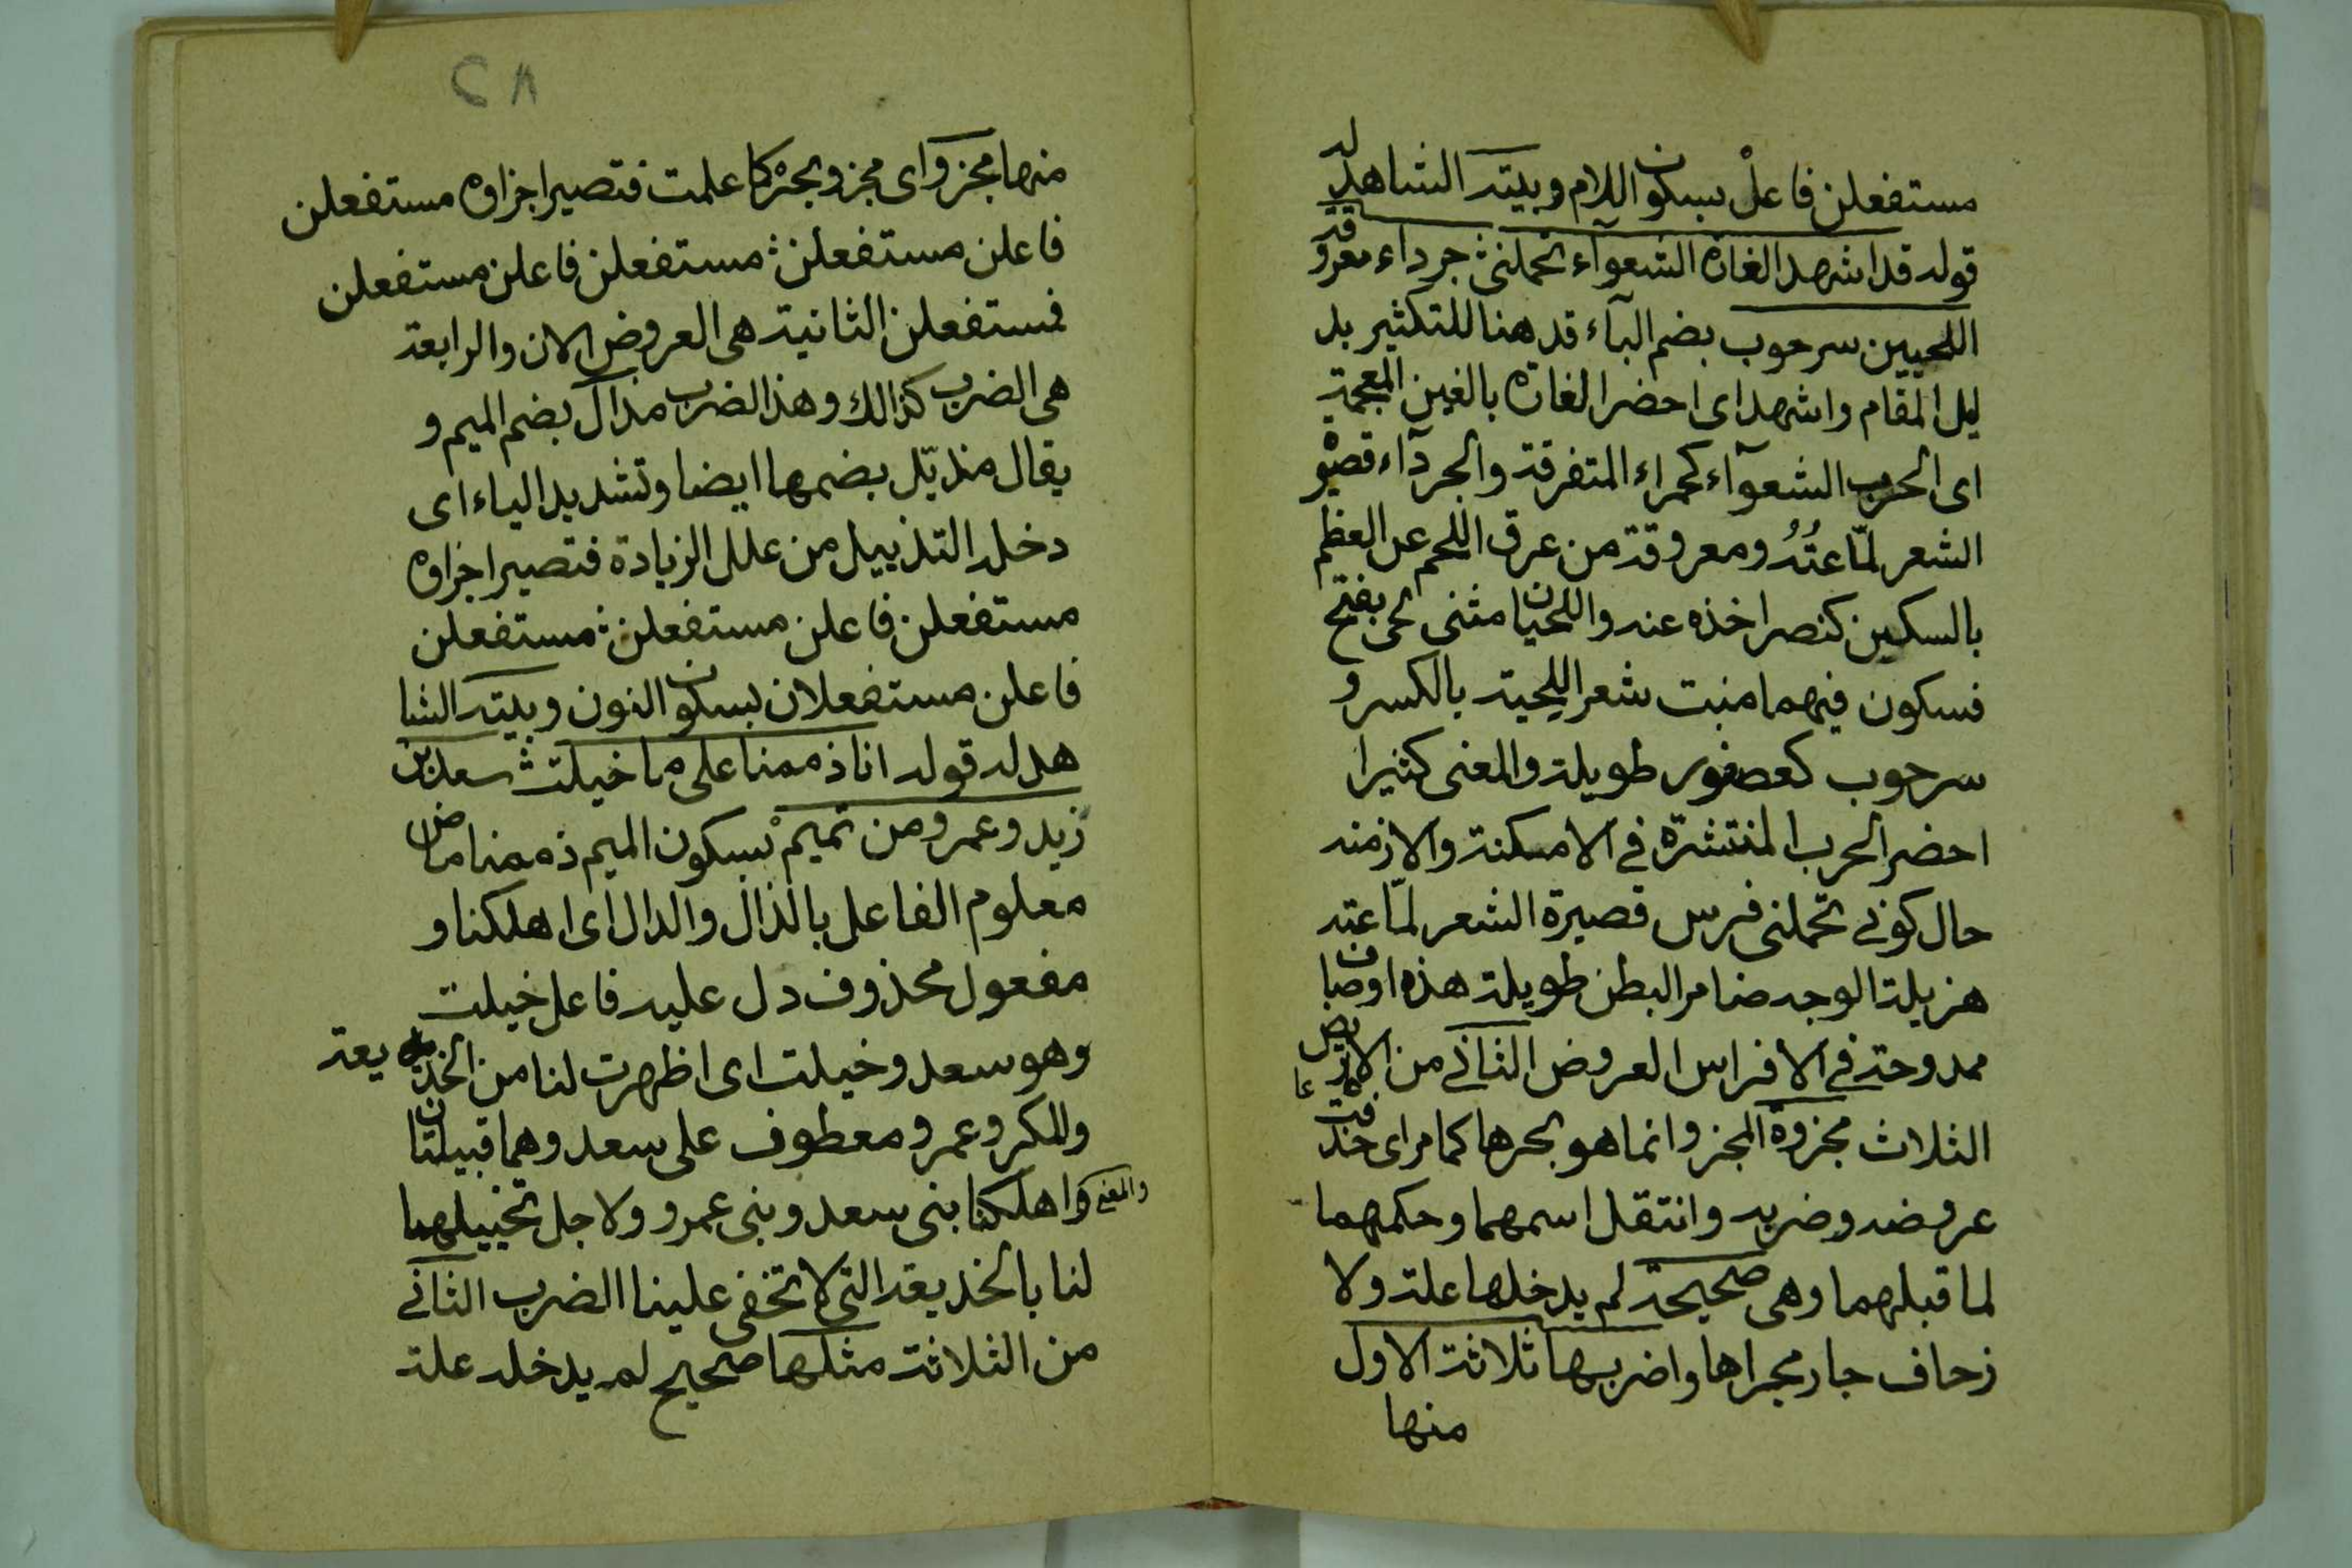 مستفعلن فاعلْ بسكون اللام وبيته الشاهد له
قوله قد اشهد الغارة الشعوآء تحملنى ؛ جرداء معروقة
اللحيين سرحوب بضم البآء قد هنا للتكثير بد
ليل المقام واشهد اى احضر الغارة بالغين المعجمة
اى الحرب الشعوآء كحمراء المتفرقة والجردآء قصيرة
الشعر لمّاعتُهُ ومعروقة من عرق اللحم عن العظم
بالسكين كنصر اخذه عنه واللحيان مثنى لحى بفتح
فسكون فيهما منبت شعر اللحية بالكسر و
سرحوب كعصفور طويلة والمعنى كثيرا
احضر الحرب المنتشرة في الامكنة والازمنه
حال كونى تحملنى فرس قصيرة الشعر لمّاعته
هزيلة الوجه ضامر البطن طويلة هذه اوصاف
ممدوحة في الافراس العروض الثانى من الاعاريض
الثلاث مجزوة المجزو انما هو بحرها كما مر اى حذفت
عروضه وضربه وانتقل اسمهما وحكمهما
لما قبلهما وهى صحيحة لم يدخلها علة ولا
زحاف جار مجراها واضربها ثلاثة الاول
منها
٢٨
منها مجزو اى مجزو بحره كما علمت فتصير اجزاؤه مستفعلن
فاعلن مستفعلن ؛ مستفعلن فاعلن مستفعلن
فمستفعلن الثانية هى العروض الان والرابعة
هى الضرب كذالك وهذا الضرب مذال بضم الميم و
يقال مذيّل بضمها ايضا وتشديد الياء اى
دخله التذييل من علل الزيادة فتصير اجزاؤه
مستفعلن فاعلن مستفعلن ؛ مستفعلن
فاعلن مستفعلان بسكون النون وبيته الشا
هد له قوله انا ذممنا على ما خيلت ؛ سعد بن
زيد وعمرو من تميمْ بسكون الميم ذممنا ماض
معلوم الفاعل بالذال والدال اى اهلكنا و
مفعول محذوف دل عليه فاعل خيلت
وهو سعد وخيلت اى اظهرت لنا من الخذيعة
والمكر وعمرو معطوف على سعد وهما قبيلتان
والمعنى واهلكنا بنى سعد وبنى عمرو ولاجل تخييلهما
لنا بالخذيعة التى لا تخفى علينا الضرب الثانى
من الثلاثة مثلها صحيح لم يدخله علة